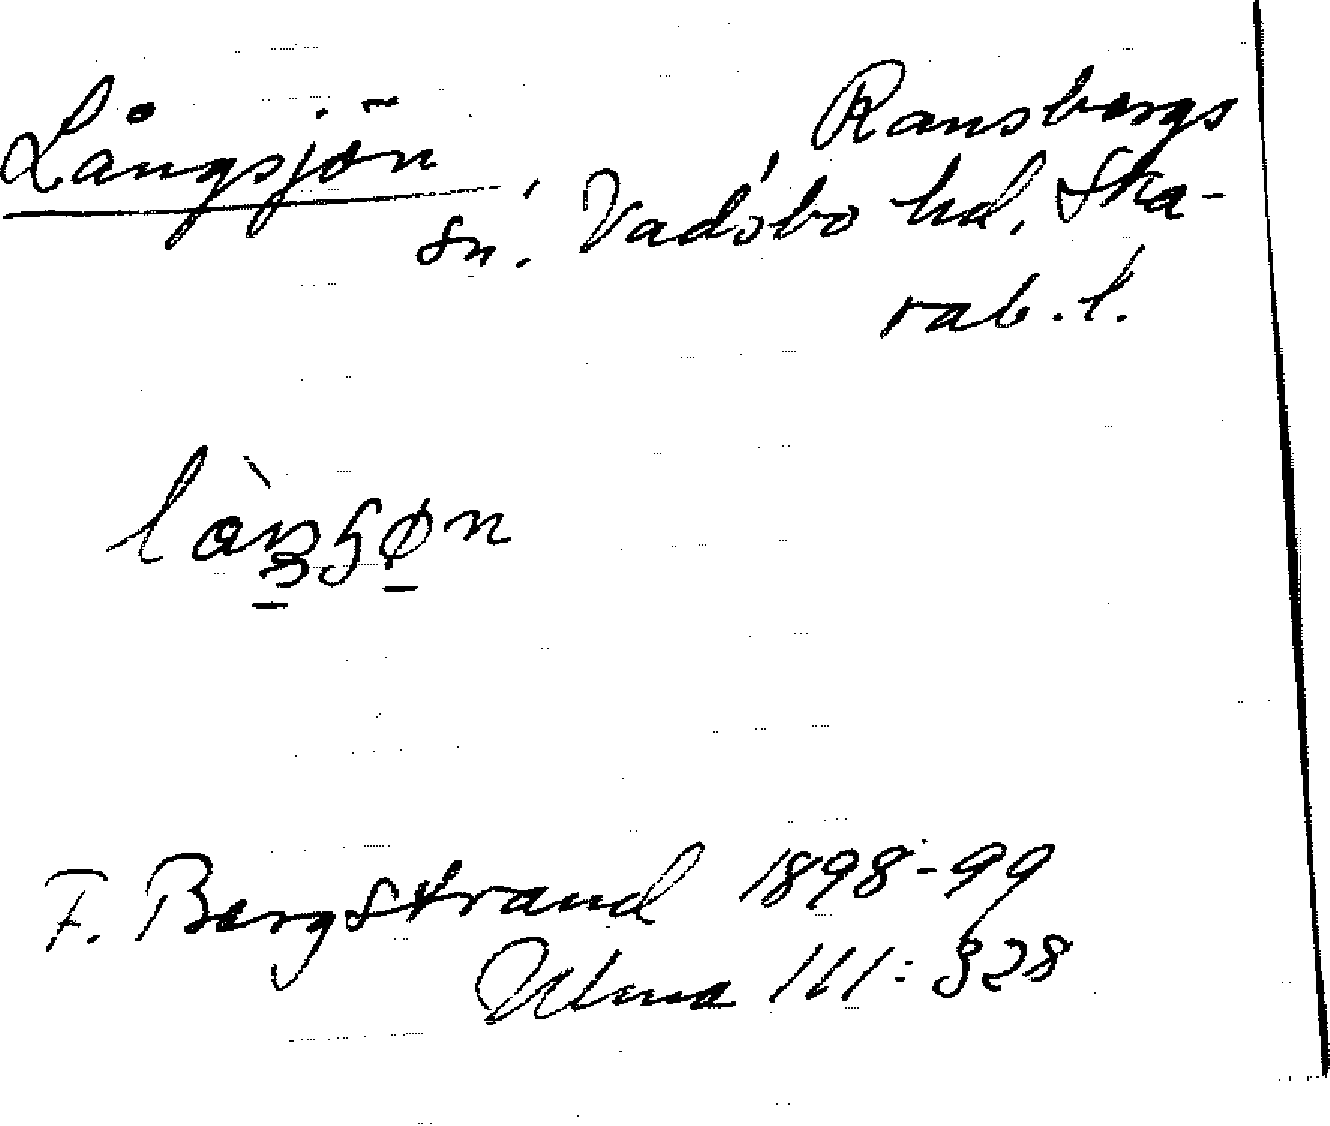 Långsjön, Ransbergs
sn, Vadsbo hd, Ska-
rab. l.
làŋʒɧøn
F. Bergstrand 1898-99
Ulma 111:328